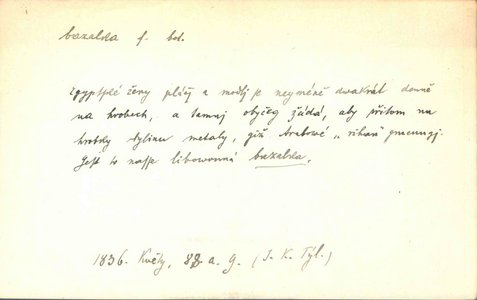 bazalka f. bot.
Egyptské ženy pláčj a modlj se neyméně dwakrát denně
na hrobech, a tamnj obyčeg žádá, aby přitom na
hroby bylinu metaly, giž Arabowé „rihan" gmenugj.
Gest to nasse libowonná bazalka.
1836. Květy, 82 a. g. (J. K. Tyl.)